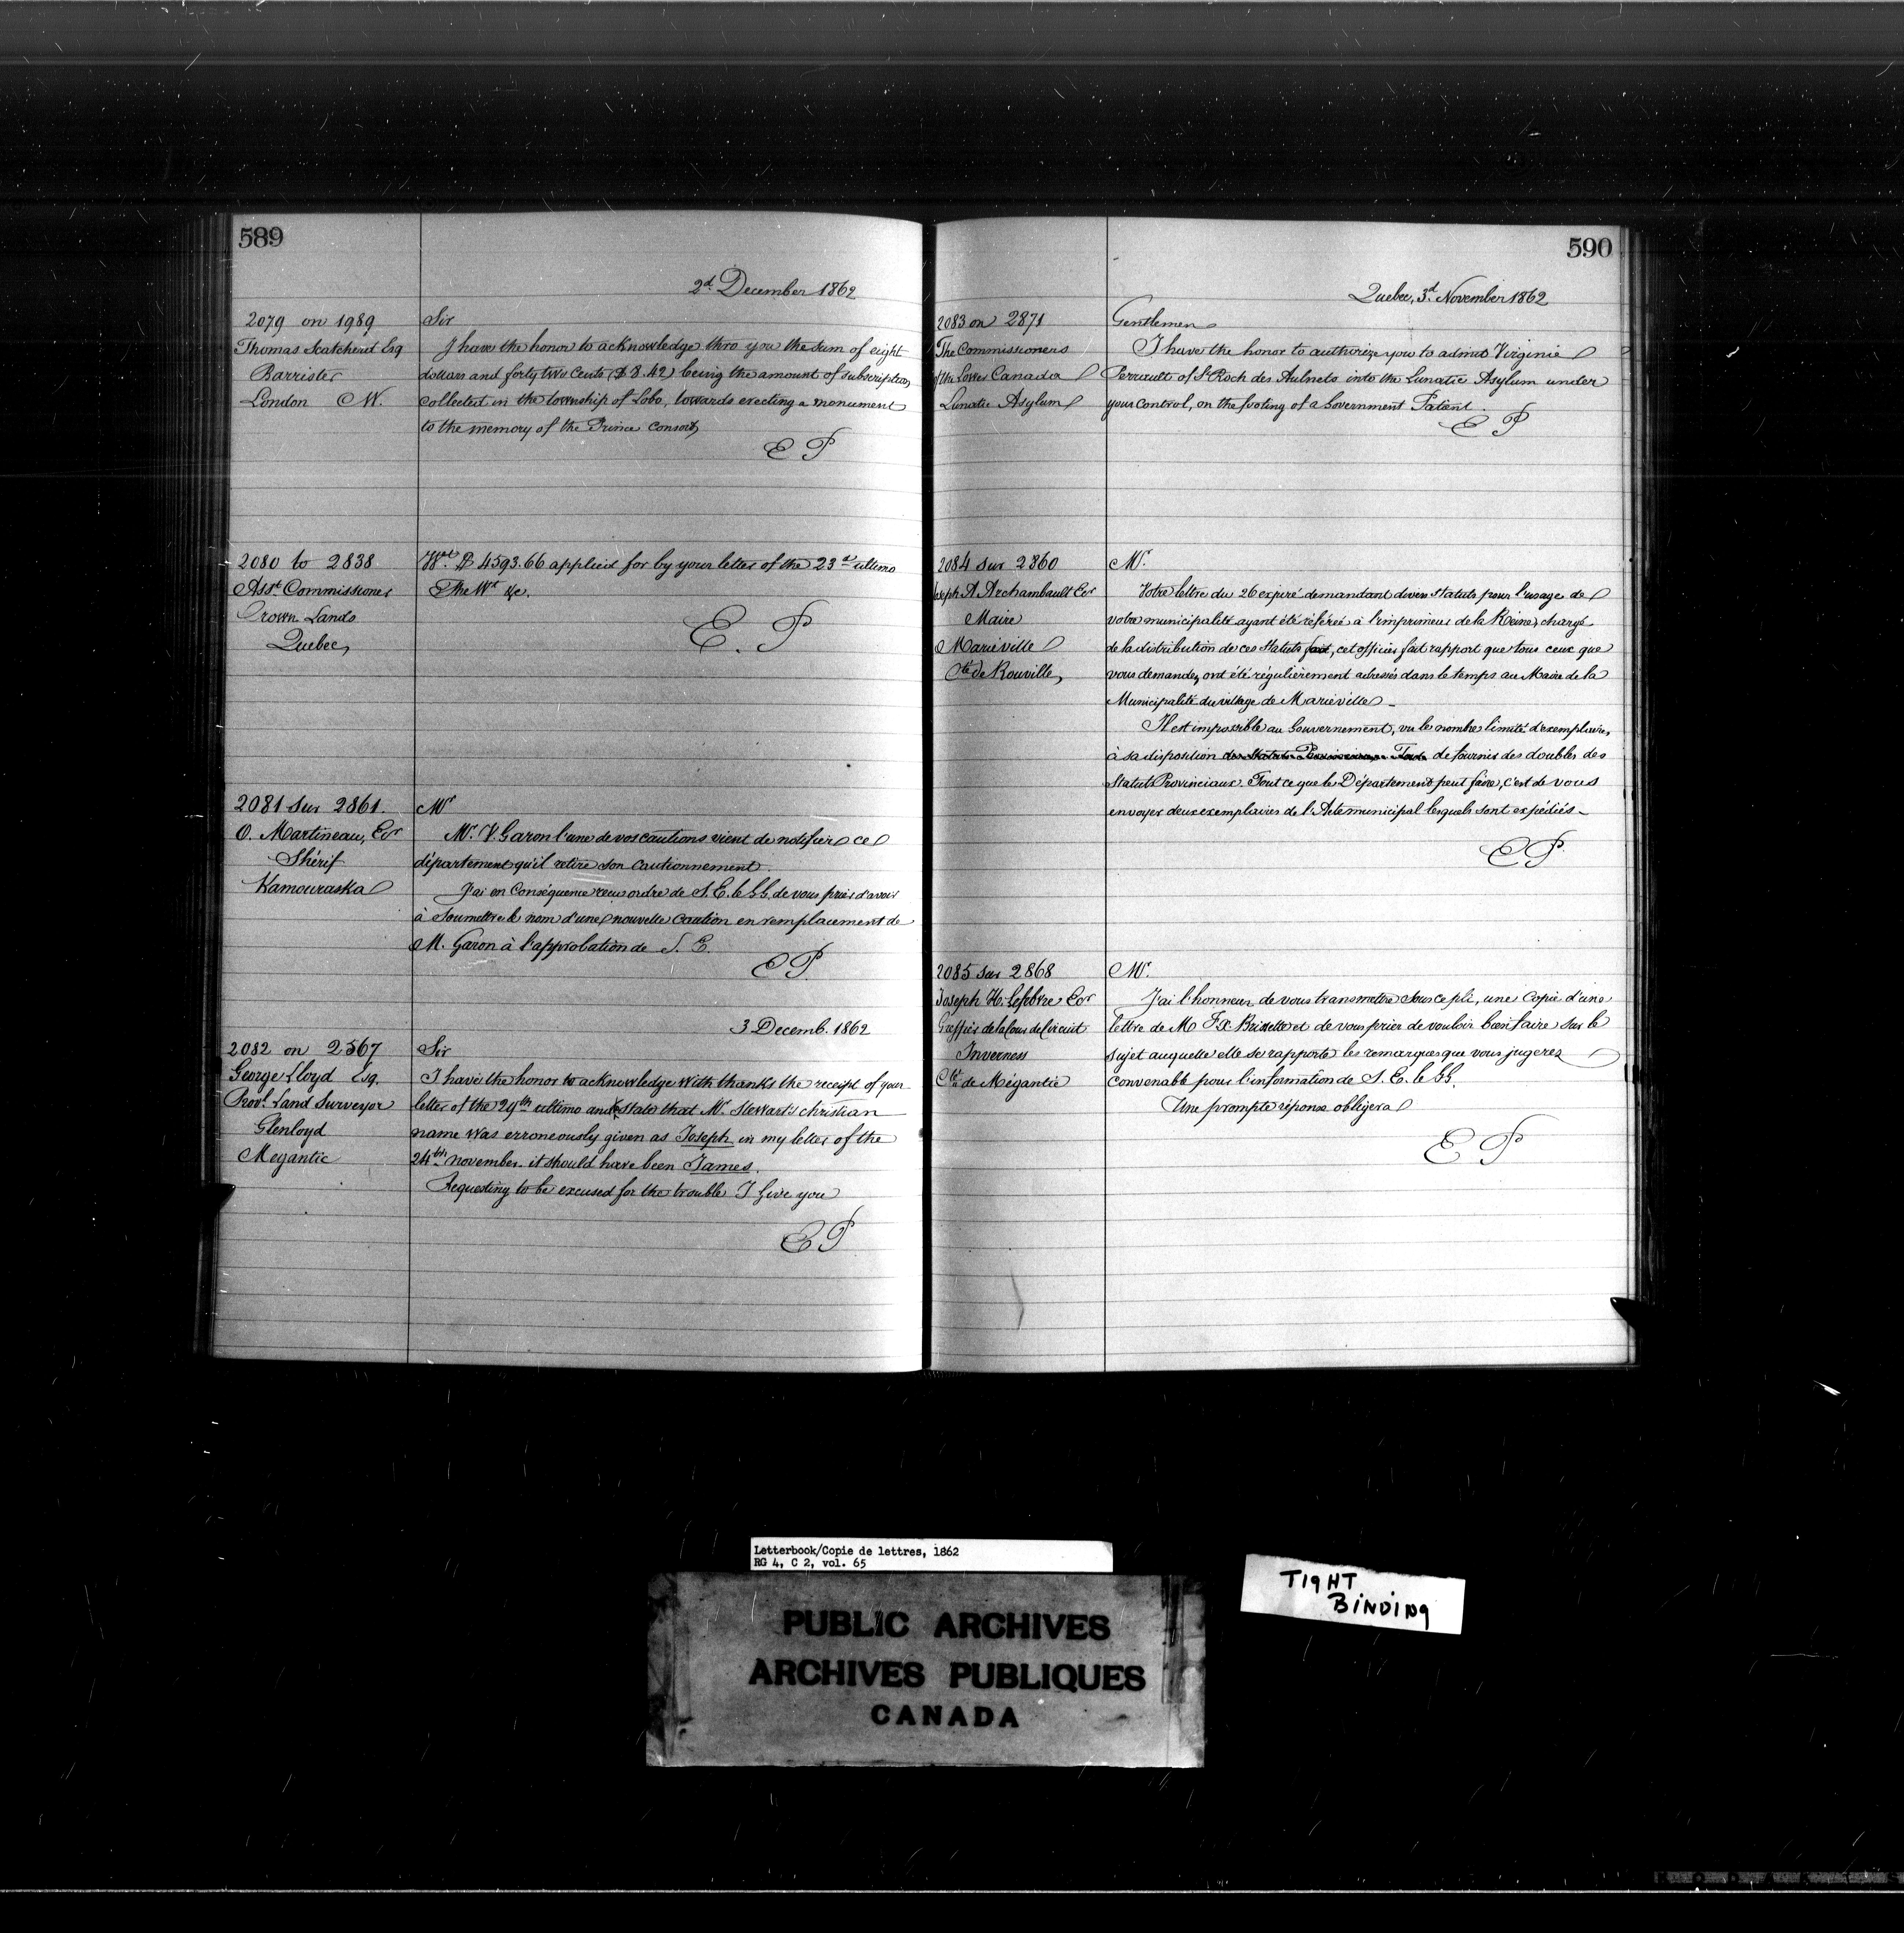 589
2d December 1862
2079 on 1989
Thomas Scatcherd Esq
Barrister
London C W.
Sir
I have the honor to acknowledge thro you the sum of eight
dollars and forty two Cents ($8.42) being the amount of subscription
collected in the township of Lobo, towards erecting a monument
to the memory of the Prince Consort,
E P
2080 to 2838
Asst Commissioner
Crown Lands
Quebec,
Wt. $4593.66 applied for by your letter of the 23d ultimo
The Wt &c.
E. P
2081 sur 2861.
O. Martineau, Ecr
Shérif
Kamouraska
Mr
Mr. V. Garon l'une de vos cautions vient de notifier ce
département qu'il retire son Cautionnement.
J'ai en Conséquence reçu ordre de S. E. le G G. de vous prier d'avoir
à soumettre le nom d'une nouvelle Caution en remplacement de
M. Garon à l'approbation de S. E.
E P
3 Decemb. 1862
2082 on 2567
George Lloyd Esq.
Provl. Land Surveyor
Glenloyd
Megantic
Sir
I have the honor to acknowledge with thanks the receipt of your
letter of the 29th ultimo and state that Mr. Stewart's christian
name was erroneously given as Joseph in my letter of the
24th november. it should have been James.
Requesting to be excused for the trouble I give you
E P
590
Quebec, 3d. November 1862
2083 on 2871
The Commissioners
of the Lower Canada
Lunatic Asylum
Gentlemen
I have the honor to authorize you to admit Virginie
Perrault of St Roch des Aulnets into the Lunatic Asylum under
your control, on the footing of a Government Patient.
E P
2084 sur 2860
Joseph A Archambault Ecr
Maire
Marieville
Cté de Rouville,
Mr.
Votre lettre du 26 expiré demandant divers statuts pour l'usage de
votre municipalité ayant été référée à l'imprimeur de la Reine, chargé
de la distribution de ces Statuts fait, cet officier fait rapport que tous ceux que
vous demandez ont été régulièrement adressés dans le temps au Maire de la
Municipalité du village de Marieville -
Il est impossible au Gouvernement, vu le nombre limité d'exemplaires
à sa disposition des Statuts Provinciaux Tout de fournir des doubles des
Statuts Provinciaux. Tout ce que le Département peut faire, c'est de vous
envoyer deux exemplaires de l'Acte municipal lesquels sont expédiés -
E P.
2085 sur 2868
Joseph H. Lefebvre Ecr
Greffier de la Cour de Circuit
Inverness
Cté de Mégantic
Mr.
J'ai l'honneur de vous transmettre sous ce pli, une Copie d'une
lettre de M F. X. Brissette et de vous prier de vouloir bien faire sur le
sujet auquelle elle se rapporte les remarques que vous jugerez
convenable pour l'information de S. E. le G G.
Une prompte réponse obligera
E P
Letterbook/Copie de lettres, 1862
RG 4, C 2, vol. 65
TIGHT
BINDING
PUBLIC ARCHIVES
ARCHIVES PUBLIQUES
CANADA